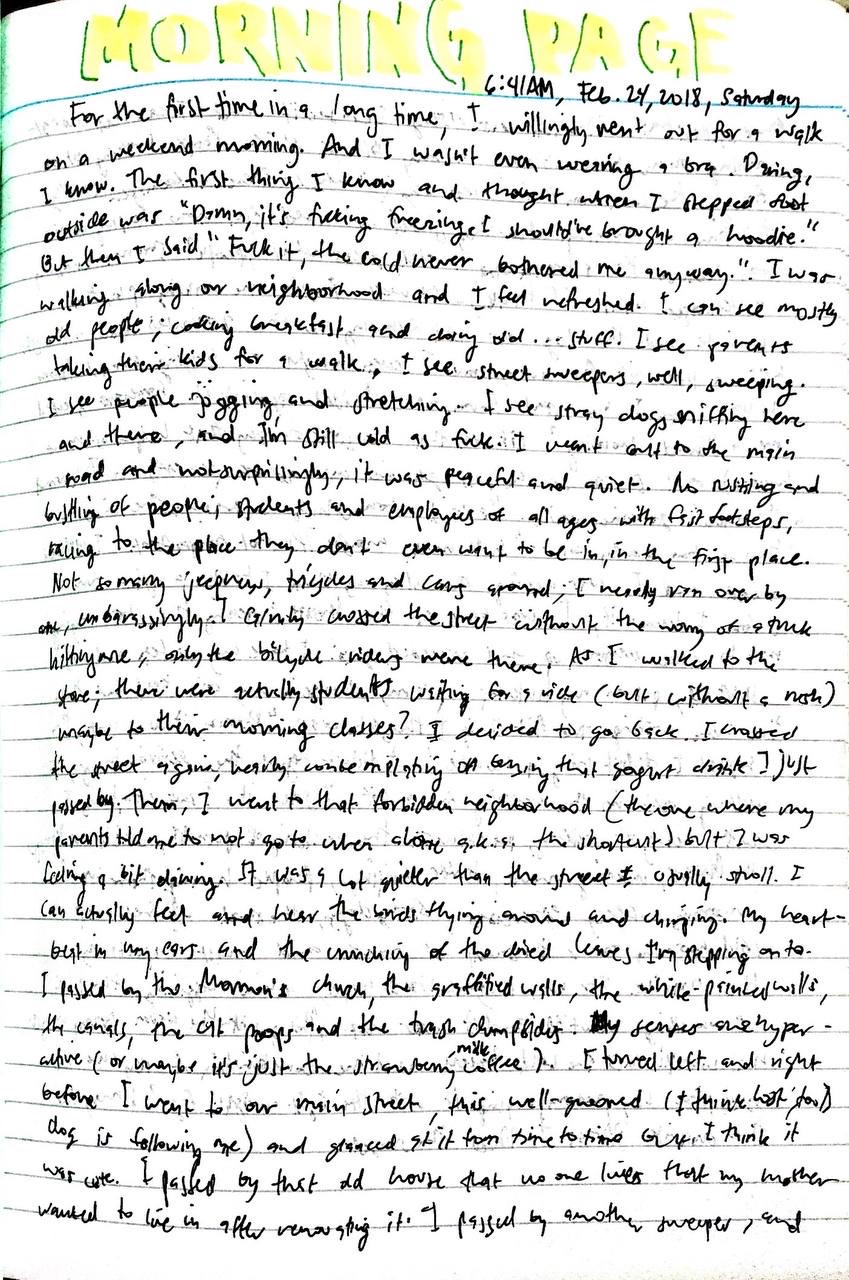 MORNING PAGE
6:41AM, Feb. 24, 2018, Saturday
For the first time in a long time, I willingly went out for a walk
on a weekend morning. And I wasn't even wearing a bra. Daring,
I know. The first thing I know and thought when I stepped foot
outside was "Damn, it's fucking freezing. I should've brought a hoodie."
But then I said "Fuck it, the cold never bothered me anyway." I was
walking along our neighborhood and I feel refreshed. I can see mostly
old people, cooking breakfast and doing old... stuff. I see parents
taking their kids for a walk, I see street sweepers, well, sweeping.
I see people jogging and stretching. I see stray dogs sniffing here
and there, and I'm still cold as fuck. I went out to the main
road and not surprisingly, it was peaceful and quiet. No rushing and
bustling of people; students and employees of all ages with fast footsteps,
racing to the place they don't even want to be in, in the first place.
Not so many jeepneys, tricycles and cars around, I nearly ran over by
one, embarassingly. I calmly crossed the street without the worry of a truck
hitting me, only the bicycle riders were there. As I walked to the
store, there were actually students waiting for a ride (but without a rush)
maybe to their morning classes? I decided to go back. I crossed
the street again, nearly contemplating on buying that yogurt drink I just
passed by. Then, I went to that forbidden neighborhood (the one where my
parents told me to not go to when alone a.k.a. the shortcut) but I was
feeling a bit daring. It was a lot quieter than the street I usually stroll. I
can actually feel and hear the birds flying around and chirping. My heart-
beat in my ears and the crunching of the dried leaves I'm stepping onto.
I passed by the Mormon's church, the graffitied walls, the white-painted walls,
the canals, the cat poops and the trash dumpsides. My senses are hyper-
active (or maybe it's just the strawberry milk coffee). I turned left and right
before I went to our main street, this well-groomed (I think
dog is following me) and glanced at it from time to time I think it
was cute. I passed by that old house that no one lives that my mother
wanted to live in after renovating it. I passed by another sweeper, and